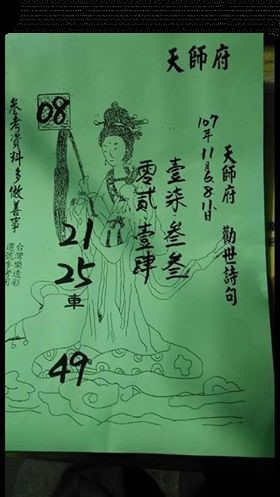 天師府
天師府 勸世詩句
107年11月6.8.11日
壹柒叄叄
零貳壹肆
08
21
25
車
49
參考資料多做善事
台灣樂透彩
選號參考用